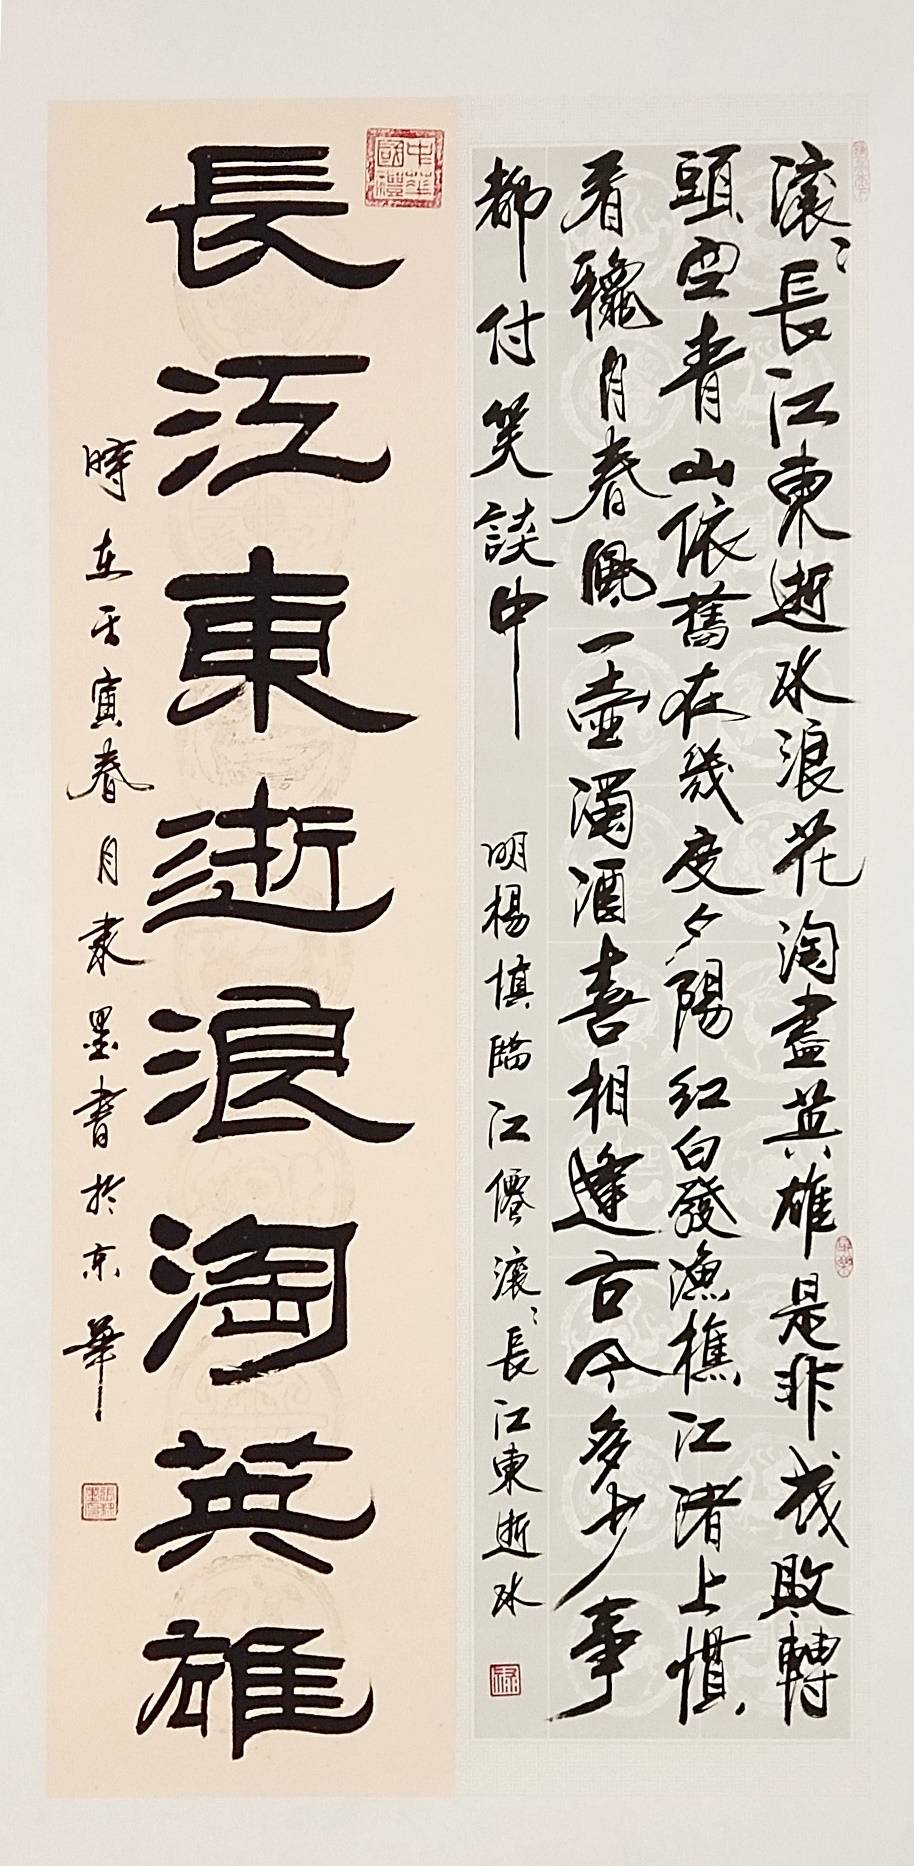 滾〻長江東逝水浪花淘盡英雄是非成敗轉
頭空青山依舊在幾度夕陽紅白發漁樵江渚上慣
看穐月春風一壺濁酒喜相逢古今多少事
都付笑談中
明楊慎臨江僊滾〻長江東逝水
長江東逝浪淘英雄
時在壬寅春月隶墨書於京華
中華國禮